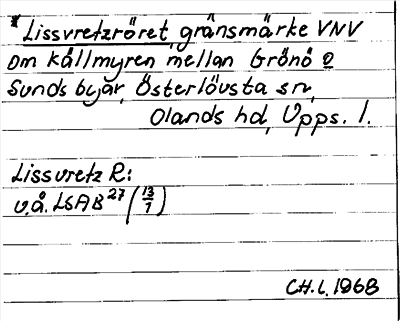 * Lissvretzröret, gränsmärke VNV
om Källmyren mellan Grönö o
Sunds byar, Österlövsta sn,
Olands hd, Upps. l.
Lissvretz R:
u.å. LSAB 27 (13/1)
CH.L. 1968